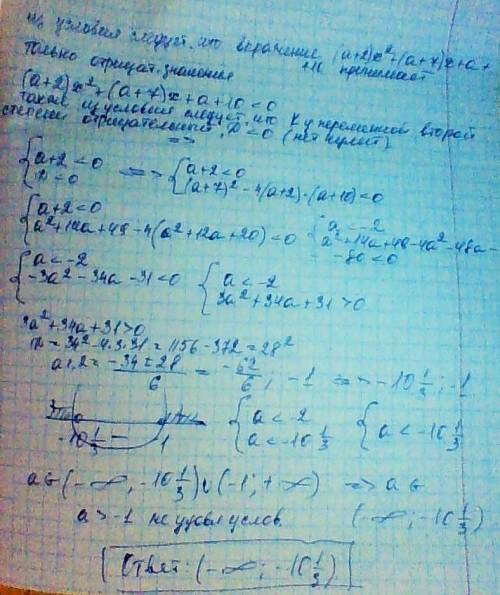 Из условия следует, что выражение (a+2)x²+(a+7)x+a+
+10 принимает
только отрицат. значения
(a+2)x²+(a+7)x+a+10<0
также из условия следует, что к у переменной второй
степени отрицательный, D<0 (нет нулей)
=>
{a+2<0 D<0 <=> {a+2<0 (a+7)²-4(a+2)·(a+10)<0
{a+2<0 a²+14a+49-4(a²+12a+20)<0 {a<-2 a²+14a+49-4a²-48a-
-80<0
{a<-2 -3a²-34a-31<0 {a<-2 3a²+34a+31>0
3a²+34a+31>0
D=34²-4·3·31=1156-372=28²
a1,2=(-34±28)/6=-62/6; -1 => -10 1/3; -1
-10 1/3 - 1 {a<-2 a<-10 1/3 {a<-10 1/3
a∈(-∞; -10 1/3)∪(-1; +∞) => a∈
a>-1 не удовл услов. (-∞; -10 1/3)
Ответ: (-∞; -10 1/3)